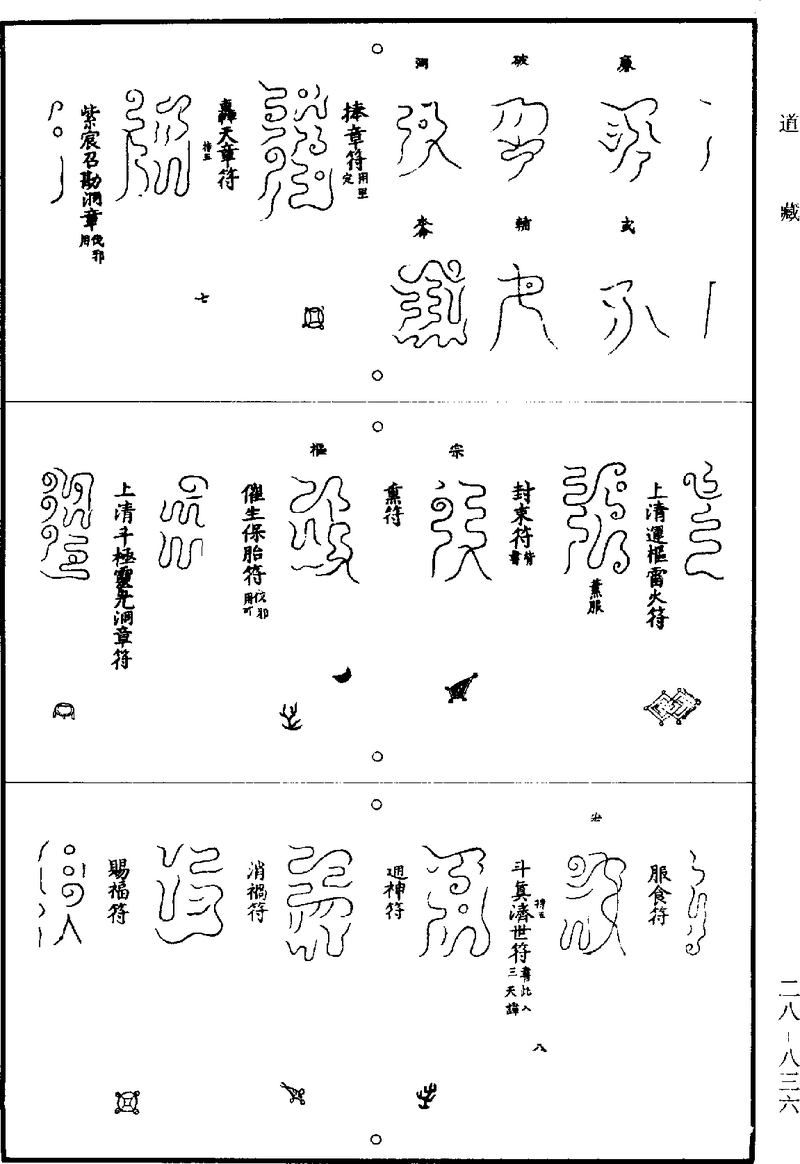 道藏
二八-八三六
廉
武
破
輔
洞
捧章符 用里定
轟天章符
七
紫宸召勘洞章 伐邪用
上清運樞雷火符
薰服
封束符
宗
薰符
樞
催生保胎符 伐邪用可
上清斗極靈光洞章符
服食符
斗真濟世符 書此入三天諱
八
通神符
消禍符
賜福符